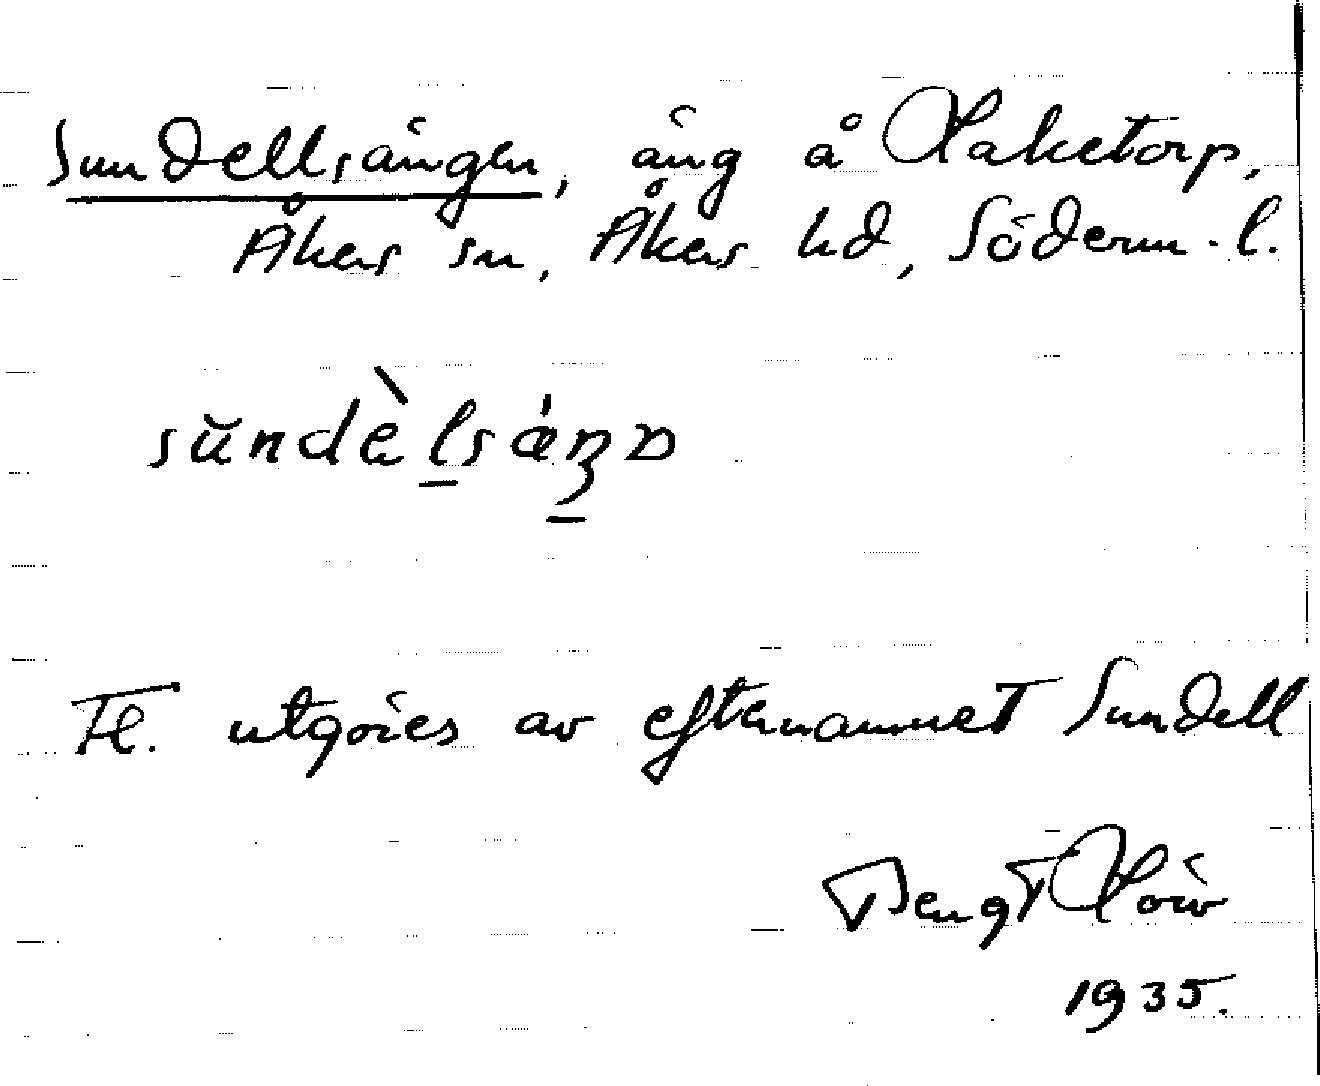 Sundellsängen, äng å Haketorp,
Åkers sn, Åkers hd, Söderm. l.
sŭndèlsáŋŋ
F.l. utgöres av efternamnet Sundell
Bengt
1935.